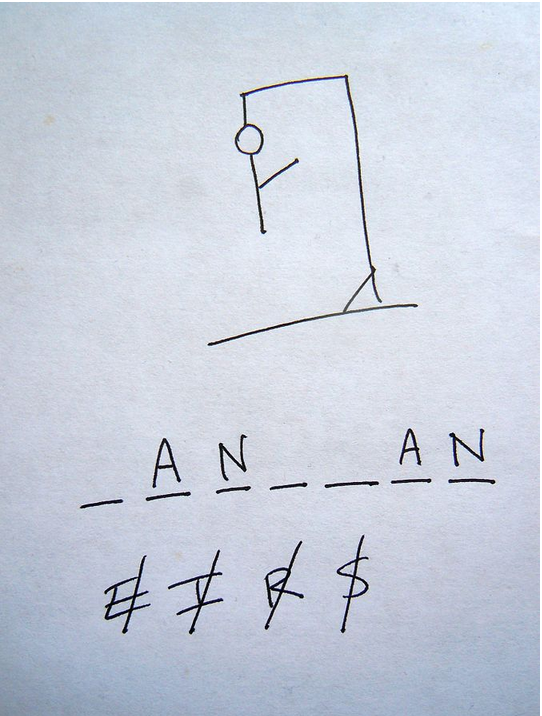 _ A N _ _ A N
E I R S